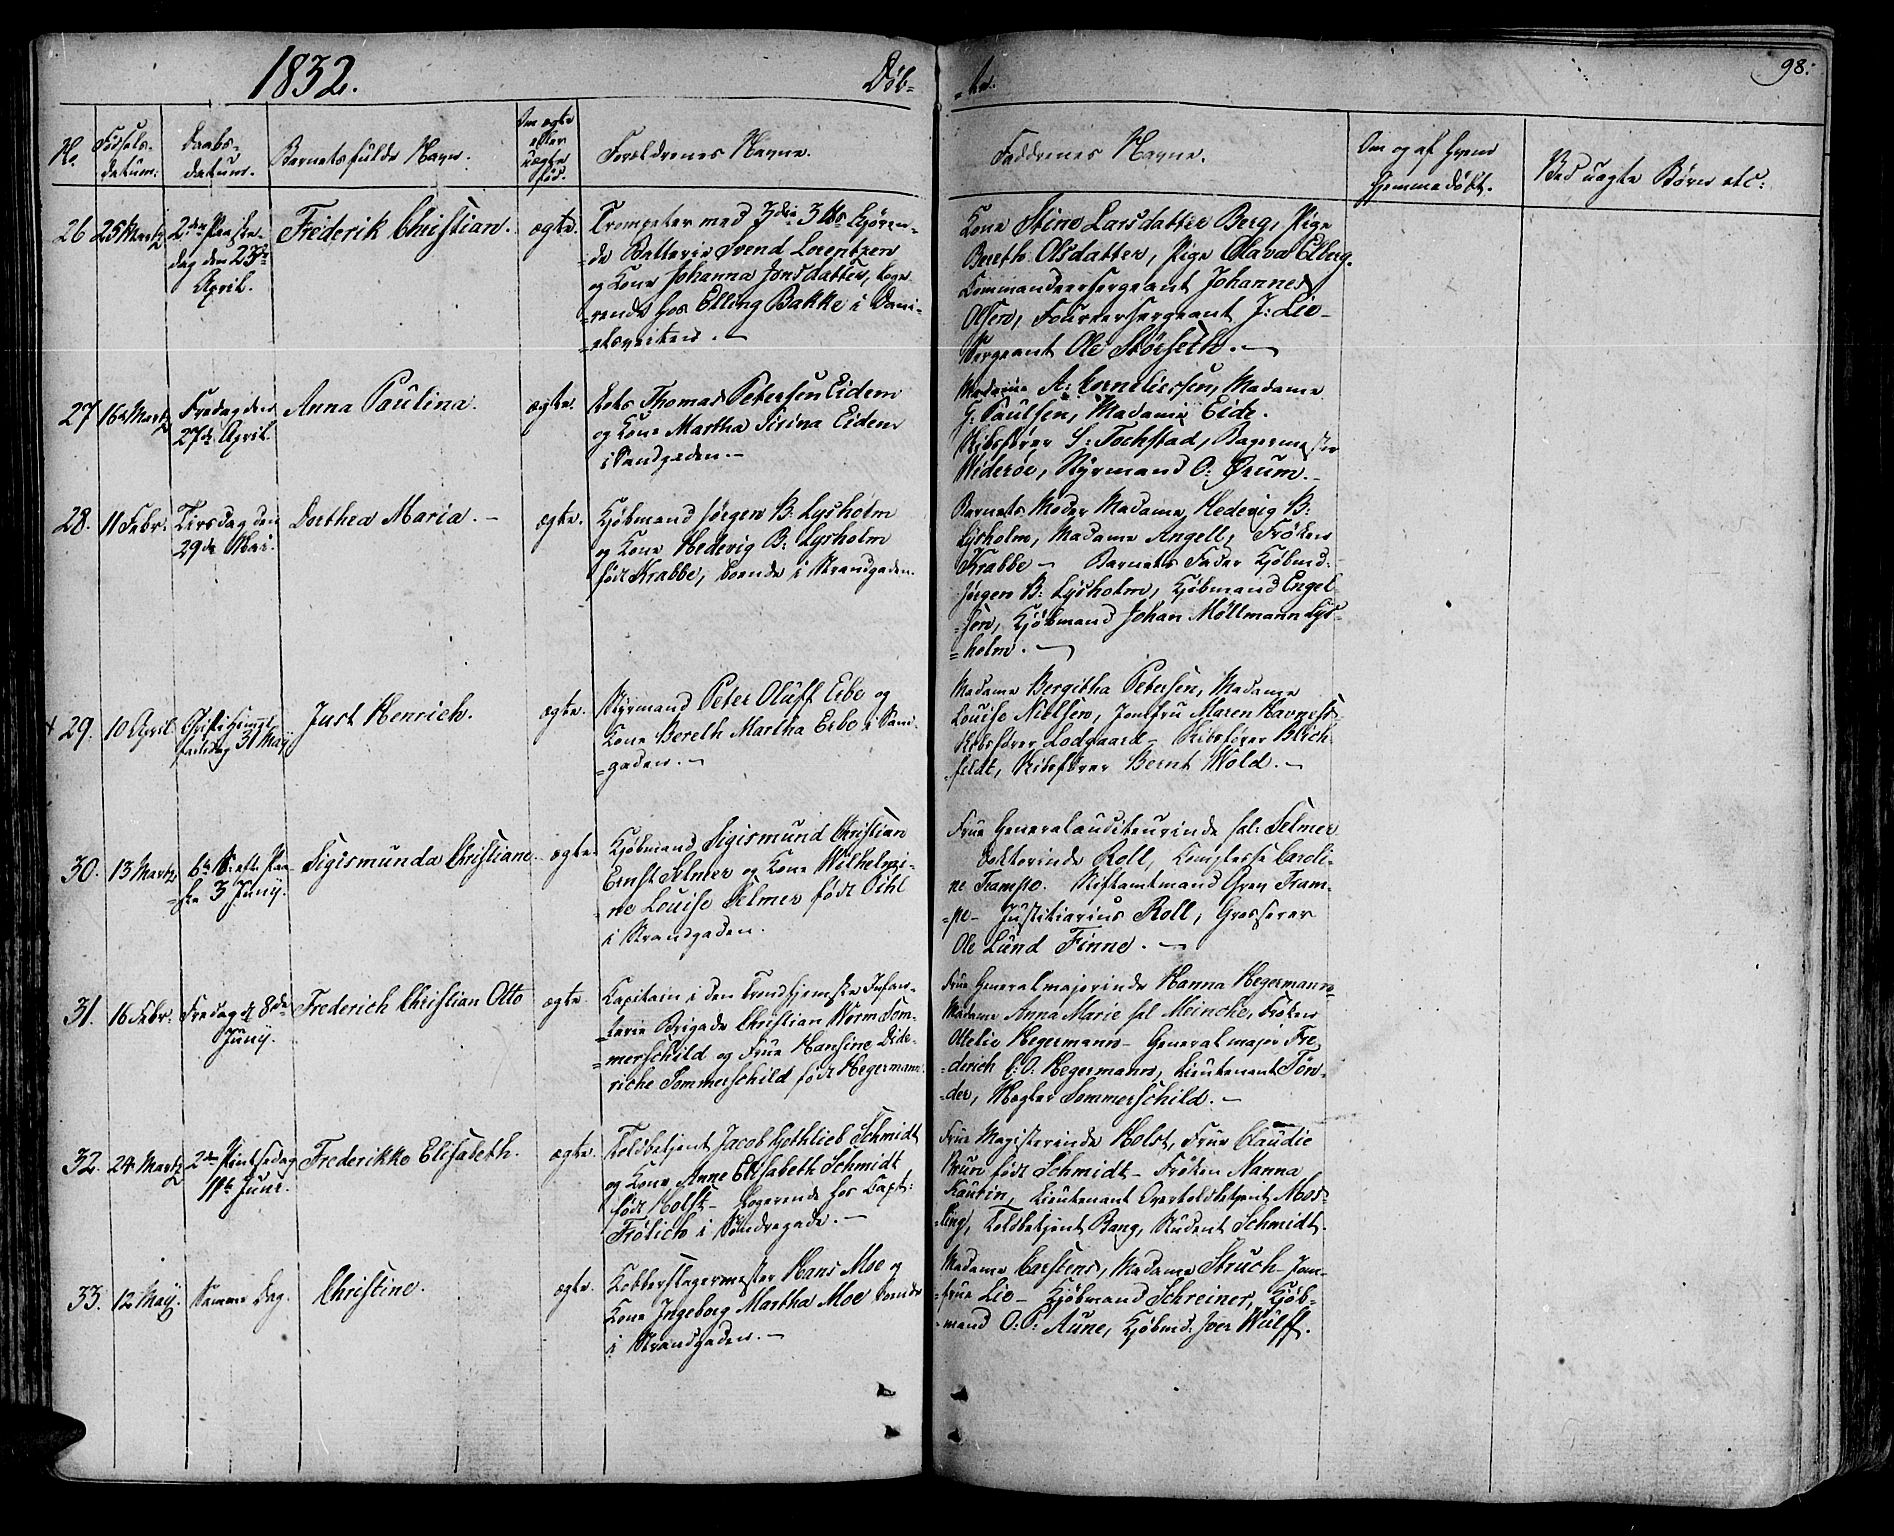 1832.
Döb-
-te.
98.
No.
Födsels-
datum.
Daabs-
datum.
Barnets fulde Navn.
Om ægte
eller
uægte
föd.
Forældrenes Navne.
Faddernes Navne.
Om og af Hvem
hjemmedöbt.
Ved uægte Börn etc:
26
25 Martz
2den Paaske-
dag den 23de
April.
Frederik Christian.
ægte.
Trompeter med 3die 3 Kjören-
-de Batterie Svend Lorentzen
og Kone Johanna Jonsdatter, loge-
-rende hos Elling Bakke i Dani-
-elsveiten.
Kone Stine Larsdatter Berg, Pige
Bereth Olsdatter, Pige Olava Elberg.
Commandeersergeant Johannes
Olsen, Fourersergeant J: Lie-
Sergeant Ole Störseth.
27
16 Martz
Fredag den
27de April.
Anna Paulina.
ægte.
Thomas Petersen Eidem
og Kone Martha Sirina Eidem
i Sandgaden.
Madame A: Corneliessen, Madame
G: Paulsen, Madame Eide.
Skibsförer S: Tochstad, Bagermester
Wideröe, Styrmand O: Örum.
28.
11 Febr.
Tirsdag den
29de Mai.
Dorthea Maria.
ægte.
Kjöbmand Jörgen B: Lysholm
og Kone Hedevig B: Lysholm
födt Krabbe, boende i Strandgaden.
Barnets Moder Madame Hedevig B:
Lysholm, Madame Angell, Fröken
Krabbe - Barnets Fader Kjöbmd:
Jörgen B: Lysholm, Kjöbmand Engel-
-sen, Kjöbmand Johan Möllmann Lys-
-holm.
29.
10 April
Christi Himmel-
fartsdag 31 Maij
Just Henrich.
ægte.
Styrmand Peter Oluff Erbo og
Kone Bereth Martha Erbo i San-
-gaden.
Madame Bergitha Petersen, Madame
Louise Nielsen, Jomfru Maren Havnes
Skibsförer Lodgaard - Skibsförer Blich-
feldt, Skibsförer Bernt Wold.
30.
13 Martz
6te S: eft. Paa-
-ske 3 Junij.
Sigismunda Christiane.
ægte.
Kjöbmand Sigismund Christian
Ernst Selmer og Kone Wilhelmi-
-ne Louise Selmer födt Pihl
i Strandgaden.
Frue Generalauditeurinde sal: Selmer
Doktorinde Roll, Comptesse Caroli-
ne Trampe. Stiftamtmand Grev Tram-
-pe - Justitiarius Roll, Grosserer
Ole Lund Finne.
31.
16 Febr.
Fredag d 8de
Junij.
Frederich Christian Otto
ægte.
Kapitain i den Trondhjemske Infan-
-terie Brigade Christian Worm Som-
-merschild og Frue Hansine Dide-
riche Sommerschild födt Hegermann.
Frue Generalmajorinde Hanna Hegermann-
Madame Anna Marie sal Meincke, Fröken
Ottelie Hegermann - Generalmajor Fre-
-derich C: O: Hegermann, Lieutenant Tön-
-der, Sommerschild.
32.
24 Martz
2den Pintsedag
11te Juni.
Frederikke Elisabeth.
ægte.
Toldbetjent Jacob Gothlieb Schmidt
og Kone Anne Elisabeth Schmidt
födt Holst - Logerende hos Capt:
Frölich i Söndregade.
Frue Magisterinde Holst, Frue Claudie
Brun födt Schmidt - Fröken Nanna
Kaurin, Lieutenant Overtoldbetjent Mos-
-ling, Toldbetjent Bang, Student Schmidt.
33.
12 Maij.
Samme Dag.
Christine.
ægte.
Kobberslagermester Hans Moe og
Kone Ingeborg Martha Moe boende
i Strandgaden.
Madame Carstens, Madame Struch - Jom-
-frue Lie - Kjöbmand Schreiner, Kjöb-
-mand O: P: Aune, Kjöbmd: Iver Wulff.